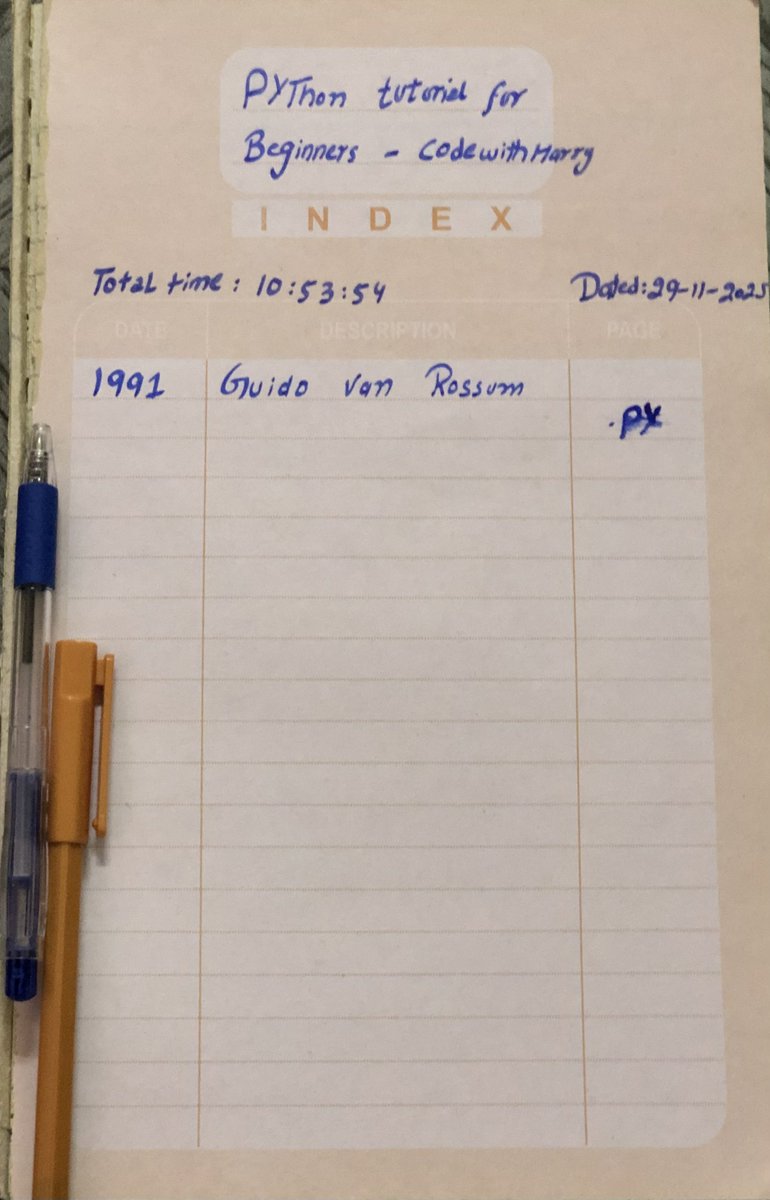 PYThon tutorial for
Beginners - CodewithHarry
INDEX
Total time: 10:53:54
Dated:29-11-2025
DATE DESCRIPTION PAGE
1991 Guido van Rossum
.py